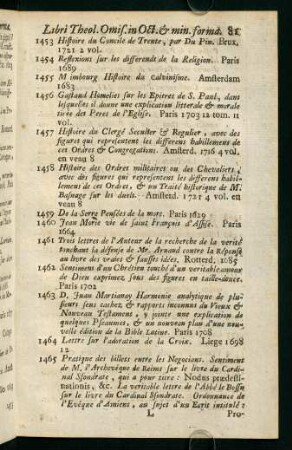 Libri Theol. Omiss. in Oct. & min. forma. 81
1453 Histoire du Concile de Trente, par Du Pin. Brux.
1721 2 vol.
1454 Reflexions sur les differends de la Religion. Paris
1689
1455 Maimbourg Histoire du Calvinisme. Amsterdam
1683
1456 Gastaud Homelies sur les Epitres de S. Paul, dans
lesquelles il donne une explication litterale & morale
tirée des Peres de l'Eglise. Paris 1703 12 tom. 11
vol.
1457 Histoire du Clergé Seculier & Regulier, avec des
figures qui representent les differens habillemens de
ces Ordres & Congregations. Amsterd. 1716 4 vol.
en veau 8
1458 Histoire des Ordres militaires ou des Chevaliers,
avec des figures qui representent les differens habil-
lemens de ces Ordres, & un Traité historique de M.
Basnage sur les duels. Amsterd. 1721 4 vol. en
veau 8
1459 De la Serre Pensées de la mort. Paris 1629
1460 Jean Marie vie de saint François d'Assise. Paris
1664
1461 Trois lettres de l'Auteur de la recherche de la verité
touchant la défense de Mr. Arnaud contre la Réponse
au livre des vrayes & fausses idées. Rotterd. 1685
1462 Sentimens d'un Chrétien touché d'un veritable amour
de Dieu exprimez sous des figures en taille-douce.
Paris 1702
1463 D. Jean Martianay Harmonie analytique de plu-
sieurs sens cachez & rapports inconnus du Vieux &
Nouveau Testament, y jointe une explication de
quelques Pseaumes, & un nouveau plan d'une nou-
velle édition de la Bible Latine. Paris 1708
1464 Lettre sur l'adoration de la Croix. Liege 1698
12
1465 Pratique des billets entre les Negocians. Sentiment
de M. l'Archevêque de Reims sur le livre du Cardi-
nal Sfondrate, qui a pour titre: Nodus prædesti-
nationis, &c. La veritable lettre de l'Abbé le Bossu
sur le livre du Cardinal Sfondrate. Ordonnance de
l'Evêque d'Amiens, au sujet d'un Ecrit intitulé:
L Pro-